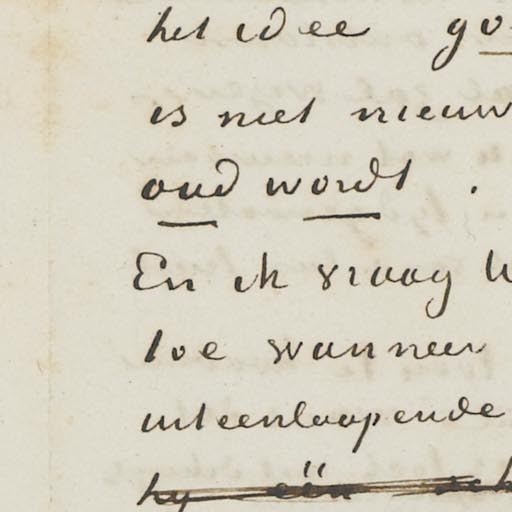 het idee go
is niet nieuw
oud wordt.
En ik vraag U
toe wanneer
uiteenloopende
hy één sch